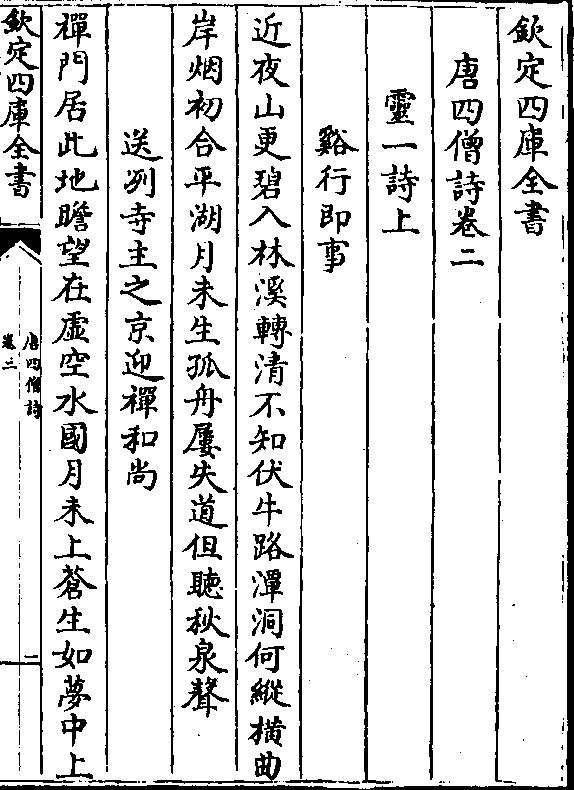 欽定四庫全書
唐四僧詩卷二
靈一詩上
谿行即事
近夜山更碧入林溪轉清不知伏牛路潭洞何縱橫曲
岸烟初合平湖月未生孤舟屢失道但聽秋泉聲
送冽寺主之京迎禪和尚
禪門居此地瞻望在虛空水國月未上蒼生如夢中上
欽定四庫全書
唐四僧詩
卷二
一